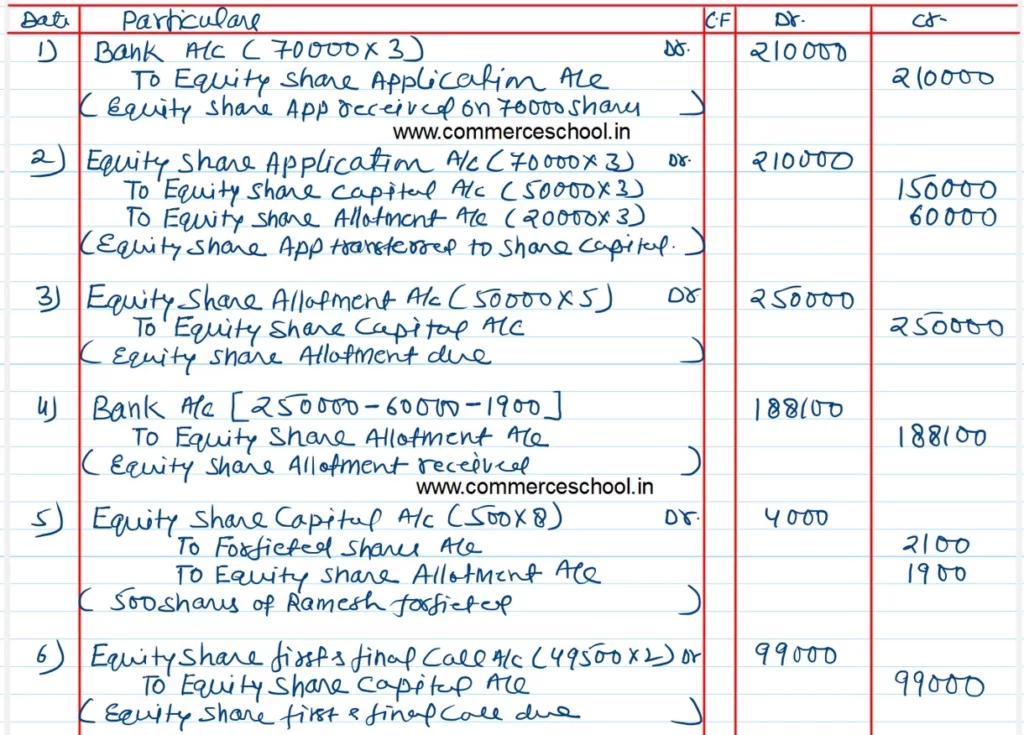 Date Particulars C.F Dr. Cr-
1) Bank A/c ( 70000 x 3 ) Dr. 210000
To Equity Share Application A/c 210000
( Equity Share App received on 70000 Shares )
www.commerceschool.in
2) Equity Share Application A/c ( 70000 x 3 ) Dr. 210000
To Equity Share Capital A/c ( 50000 x 3 ) 150000
To Equity Share Allotment A/c ( 20000 x 3 ) 60000
( Equity Share App transferred to Share Capital. )
3) Equity Share Allotment A/c ( 50000 x 5 ) Dr 250000
To Equity Share Capital A/c 250000
( Equity Share Allotment due )
4) Bank A/c [ 250000 - 60000 - 1900 ] 188100
To Equity Share Allotment A/c 188100
( Equity Share Allotment received )
www.commerceschool.in
5) Equity Share Capital A/c ( 500 x 8 ) Dr. 4000
To Forfieted Shares A/c 2100
To Equity Share Allotment A/c 1900
( 500 shares of Ramesh forfieted )
6) Equity Share first & final Call A/c ( 49500 x 2 ) Dr 99000
To Equity Share Capital A/c 99000
( Equity Share first & final Call due )